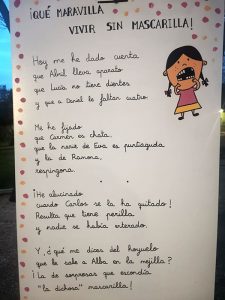 ¡QUÉ MARAVILLA
VIVIR SIN MASCARILLA!
Hoy me he dado cuenta
que Abril lleva aparato
que Lucía no tiene dientes
y que a Danel le faltan cuatro.
Me he fijado
que Carmen es chata,
que la nariz de Eva es puntiaguda
y la de Ramona,
respingona.
¡He alucinado
cuando Carlos se la ha quitado!
Resulta que tiene perilla
y nadie se había enterado.
Y, ¿qué me dices del hoyuelo
que le sale a Alba en la mejilla?
¡La de sorpresas que escondía
"la dichosa" mascarilla!